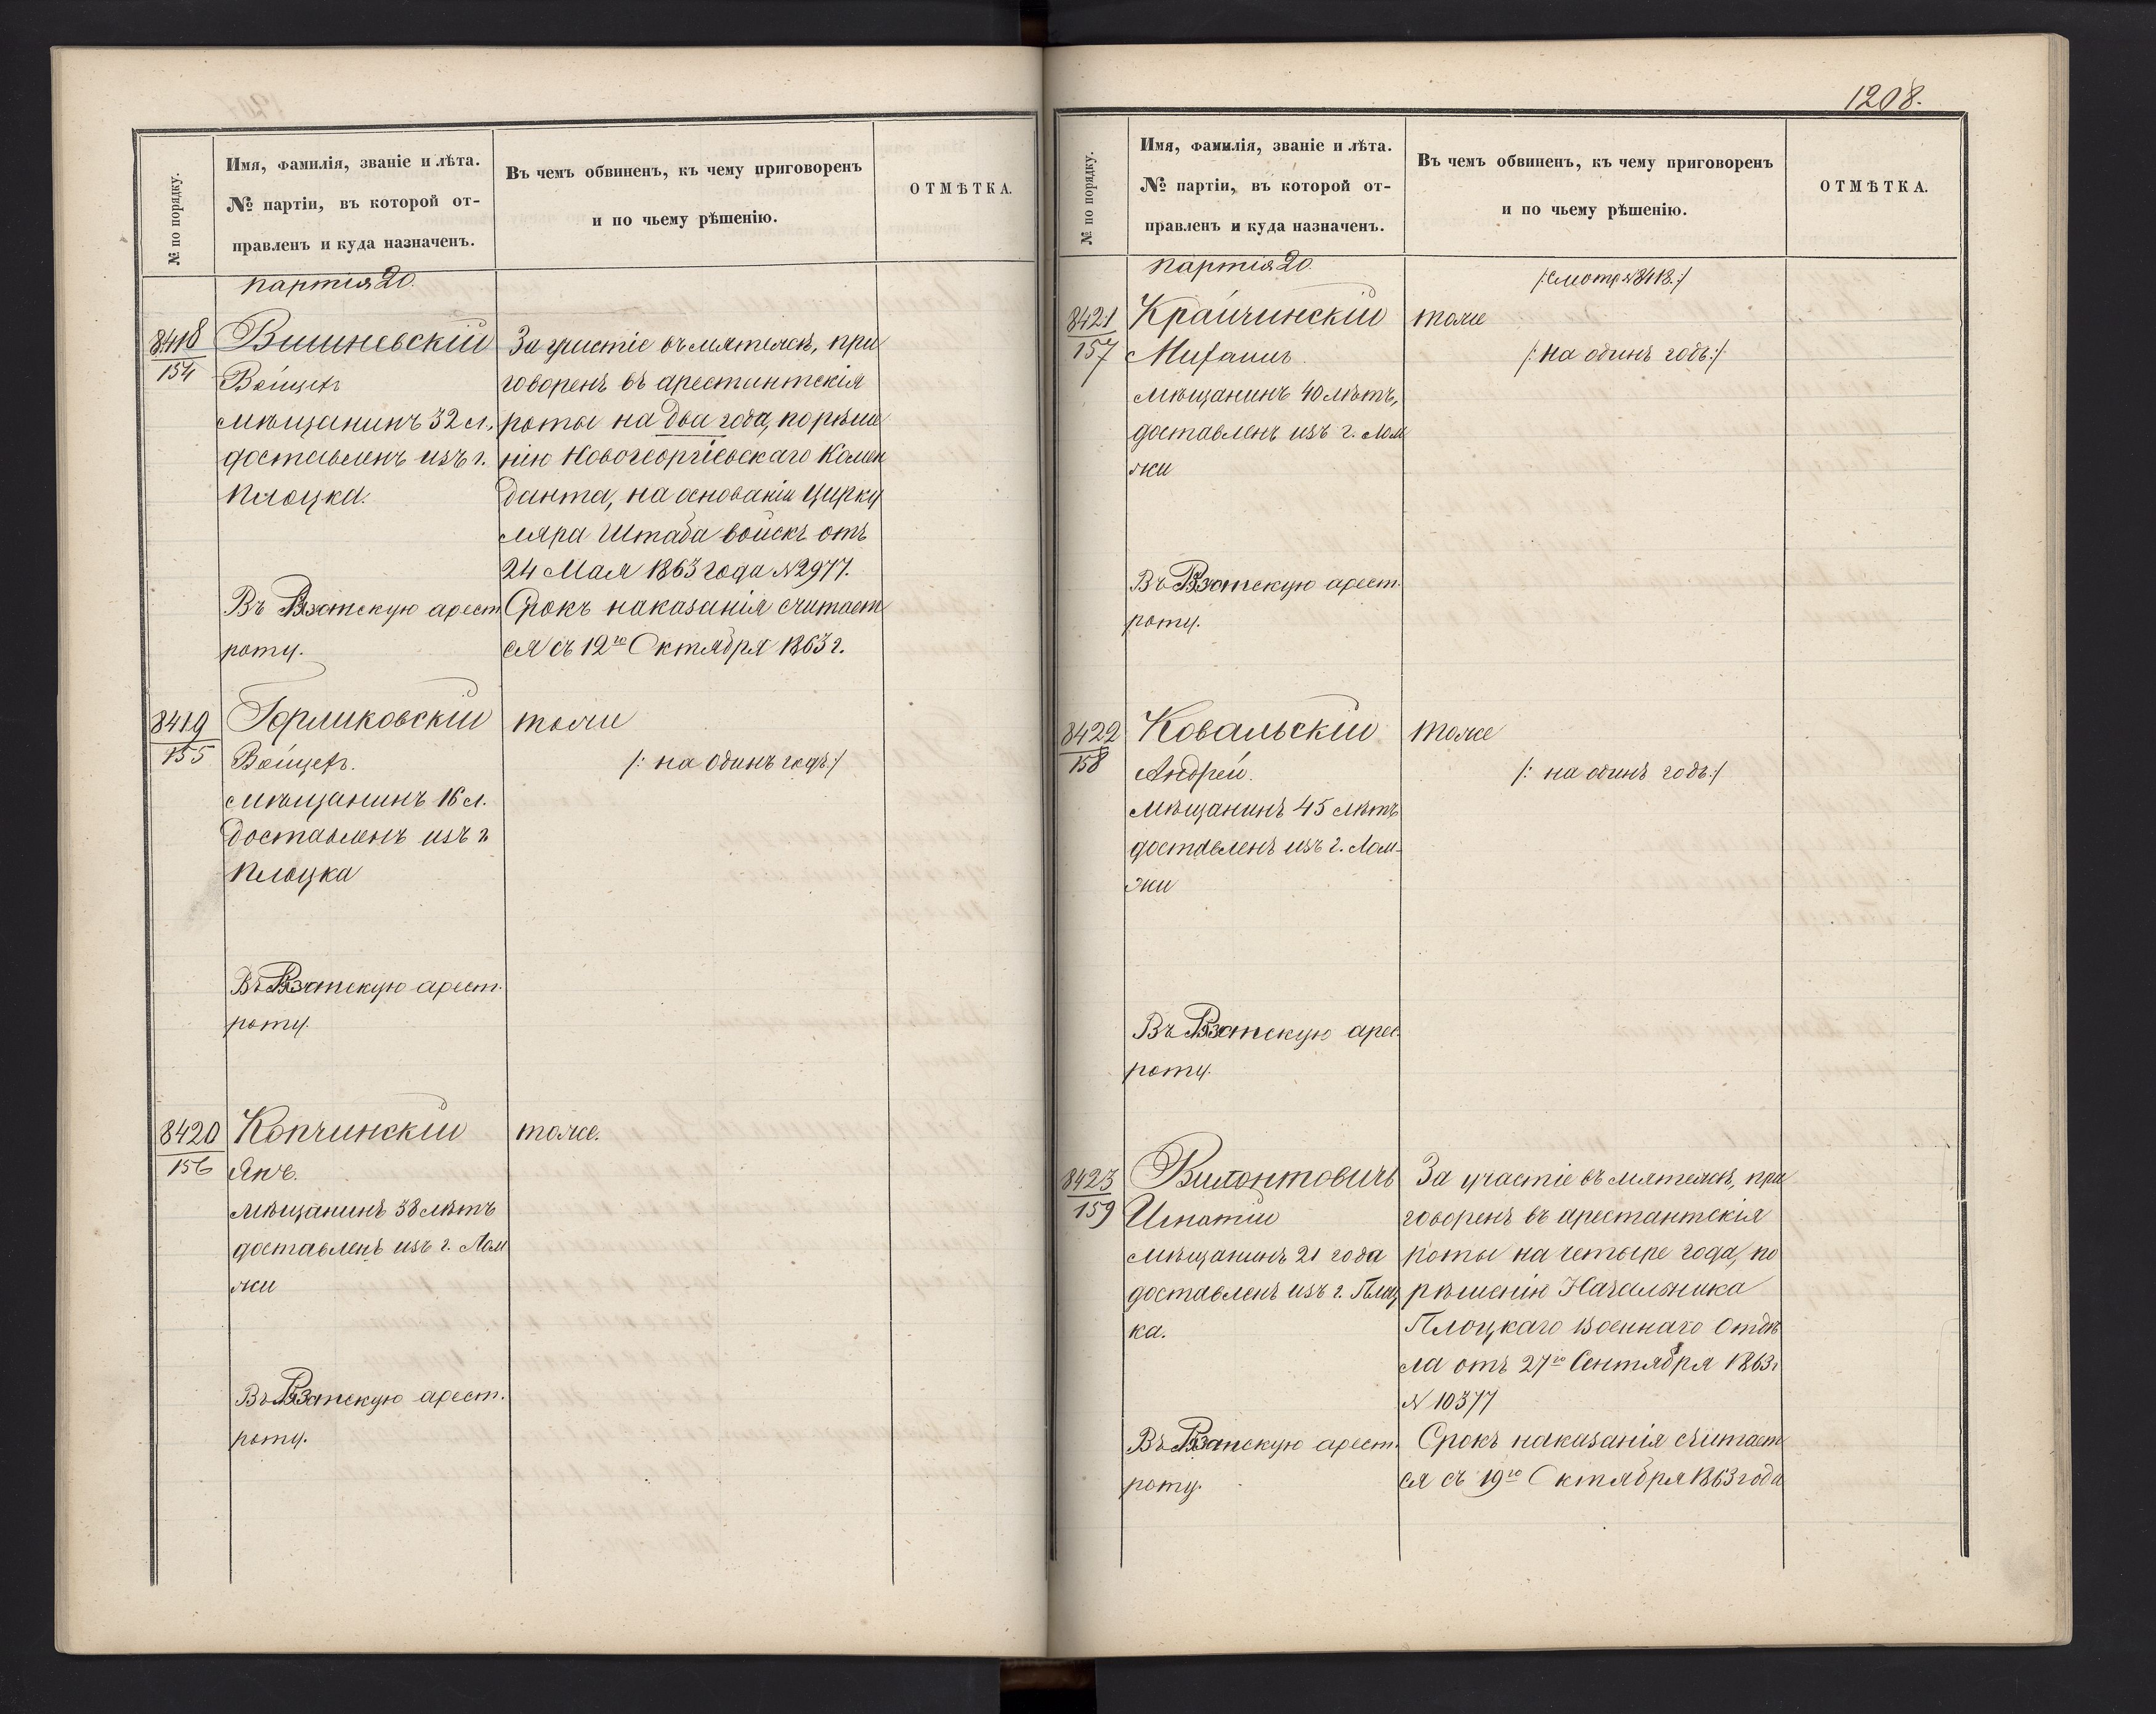 № по порядку.
Имя, фамилія, званіе и лѣта.
№ партіи, въ которой от-
правленъ и куда назначенъ.
Въ чемъ обвиненъ, къ чему приговоренъ
и по чьему рѣшенію.
ОТМѢТКА.
партія 20.
8418
154
Вишневскій
Войцех
мѣщанинъ 32 л.,
доставленъ изъ г.
Плоцка.
Въ арест.
роту.
За участіе въ мятежѣ, при
говоренъ въ арестантскія
роты на два года, по рѣше
нію Новогеоргіевскаго Комен
данта, на основаніи Цирку
ляра Штаба войскъ отъ
24 Мая 1863 года №2977.
Срокъ наказанія считает
ся съ 12го Октября 1863 г.
8419
155
Горликовскій
Войцех.
мѣщанинъ 16 л.
доставленъ изъ г.
Плоцка
Въ арест.
роту.
тоже
/: на одинъ годъ :/
8420
156
Копчинскій
Янъ.
мѣщанинъ 38 лѣтъ
доставленъ изъ г. Лом
жи
Въ арест.
роту.
тоже.
1208.
№ по порядку.
Имя, фамилія, званіе и лѣта.
№ партіи, въ которой от-
правленъ и куда назначенъ.
Въ чемъ обвиненъ, къ чему приговоренъ
и по чьему рѣшенію.
ОТМѢТКА.
партія 20.
/: Смотр. №8418. :/
8421
157
Крайчинскій
Михаил.
мѣщанинъ 40 лѣтъ,
доставленъ изъ г. Лом
жи
Въ арест.
роту.
тоже
/: на одинъ годъ :/
8422
158
Ковальскій
Андрей.
мѣщанинъ 45 лѣтъ
доставленъ изъ г. Лом-
жи
Въ арес.
роту.
тоже
/: на одинъ годъ :/
8423
159
Игнатій
мѣщанинъ 21 года
доставленъ изъ г. Плоц
ка.
Въ арест.
роту.
За участіе въ мятежѣ, при
говоренъ въ арестантскія
роты на четыре года, по
рѣшенію Начальника
Плоцкаго Военнаго Отдѣ
ла отъ 27го Сентября 1863 г.
№ 10377
Срокъ наказанія считает
ся съ 19го Октября 1863 года